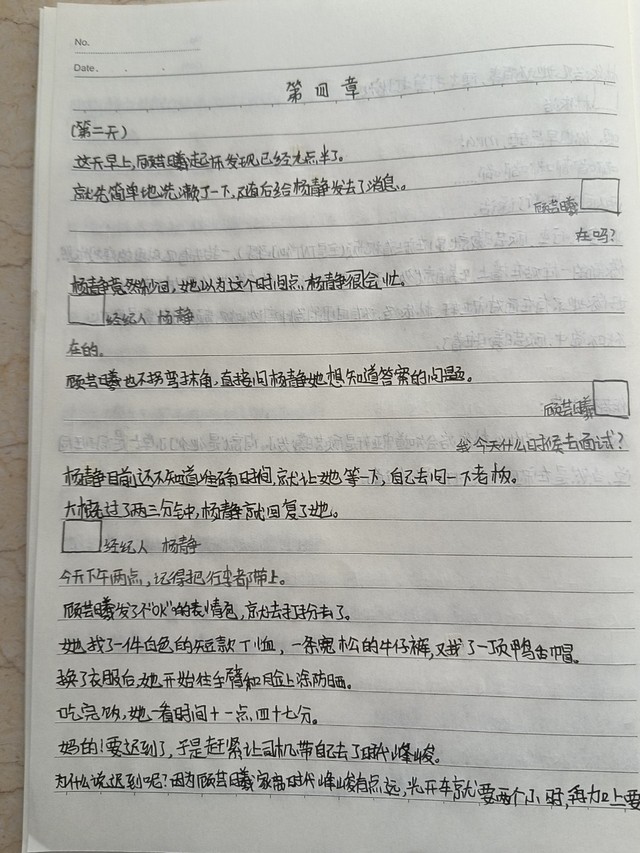 No.
Date. . .
第四章
(第二天)
这天早上,顾芸曦起床发现已经九点半了。
就先简单地洗漱了一下,随后给杨静发去了消息。
顾芸曦
在吗?
杨静竟然秒回,她以为这个时间点,杨静很会忙。
经纪人 杨静
在的。
顾芸曦也不拐弯抹角,直接问杨静她想知道答案的问题。
顾芸曦
我今天什么时候去面试?
杨静目前还不知道准确时间,就让她等一下,自己去问一下老板。
大概过了两三分钟,杨静就回复了她。
经纪人 杨静
今天下午两点,记得把行李都带上。
顾芸曦发了个"OK"的表情包,京尤去打扮去了。
她找了一件白色的短款T恤,一条宽松的牛仔裤,又找了一顶鸭舌帽。
换了衣服后,她开始往手臂和脸上涂防晒。
吃完饭,她一看时间十一点四十七分。
妈的!要迟到了,于是赶紧让司机带自己去了时代峰峻。
为什么说迟到呢?因为顾芸曦家离时代峰峻有点远,光开车就要两个小时,再加上要